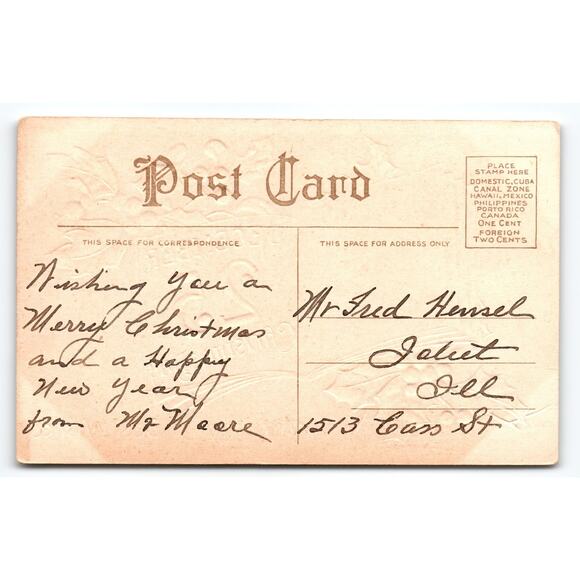 Post Card
PLACE
STAMP HERE
DOMESTIC, CUBA
CANAL ZONE
HAWAII, MEXICO
PHILIPPINES
PORTO RICO
CANADA
ONE CENT
FOREIGN
TWO CENTS
THIS SPACE FOR CORRESPONDENCE
THIS SPACE FOR ADDRESS ONLY
Wishing you a
Merry Christmas
and a Happy
New Year
from Mr Moore
Mr Fred Hensel
Joliet
Ill
1513 Cass St